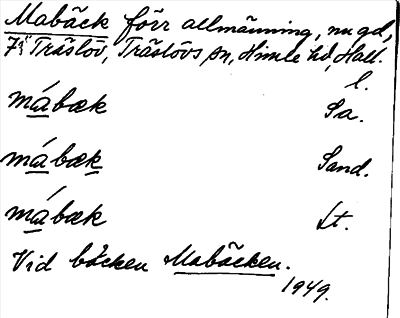 Mabäck förr allmänning, nu gd,
7¹ Träslöv, Träslövs sn, Himle hd, Hall.
l.
mábæk Sa.
mábæk Sand.
mábæk Lt.
Vid bäcken Mabäcken.
1949.